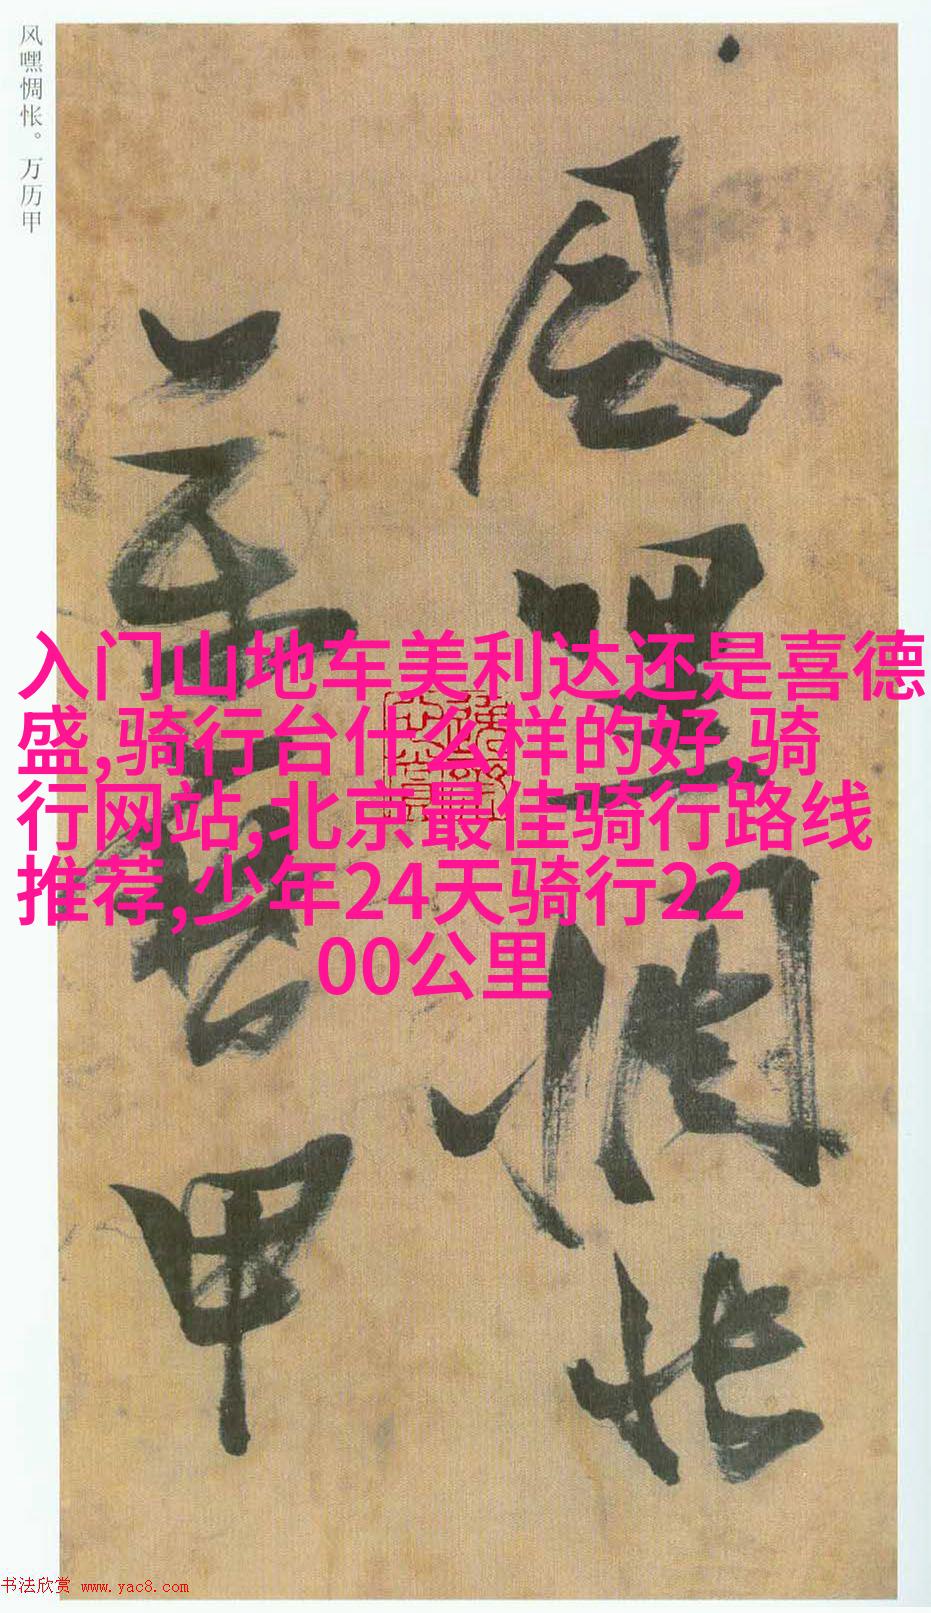 风嘿惆怅。万历甲
风嘿惆怅
万历甲
入门山地车美利达还是喜德
盛,骑行台什么样的好,骑
行网站,北京最佳骑行路线
推荐,少年24天骑行22
00公里
书法欣赏 www.yac8.com